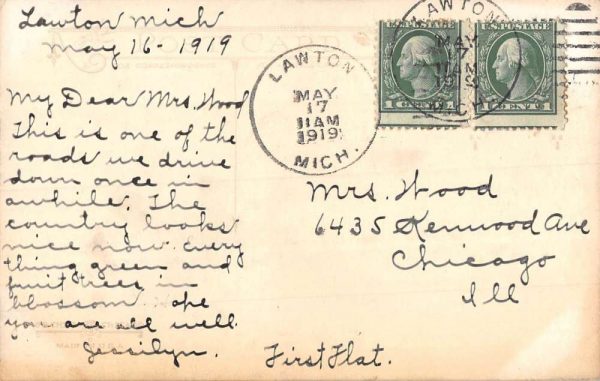 Lawton Mich
May 16 - 1919
My Dear Mrs. Wood
This is one of the
roads we drive
down once in
awhile. The
country looks
nice now every
thing green and
fruit trees in
blossom ope
you are all well.
Jessilyn.
LAWTON
MAY
17
11AM
1919
MICH.
LAWTON
MAY
17
U.S. POSTAGE
Mrs. Wood
6435 Kenwood Ave
Chicago
Ill
First Flat.